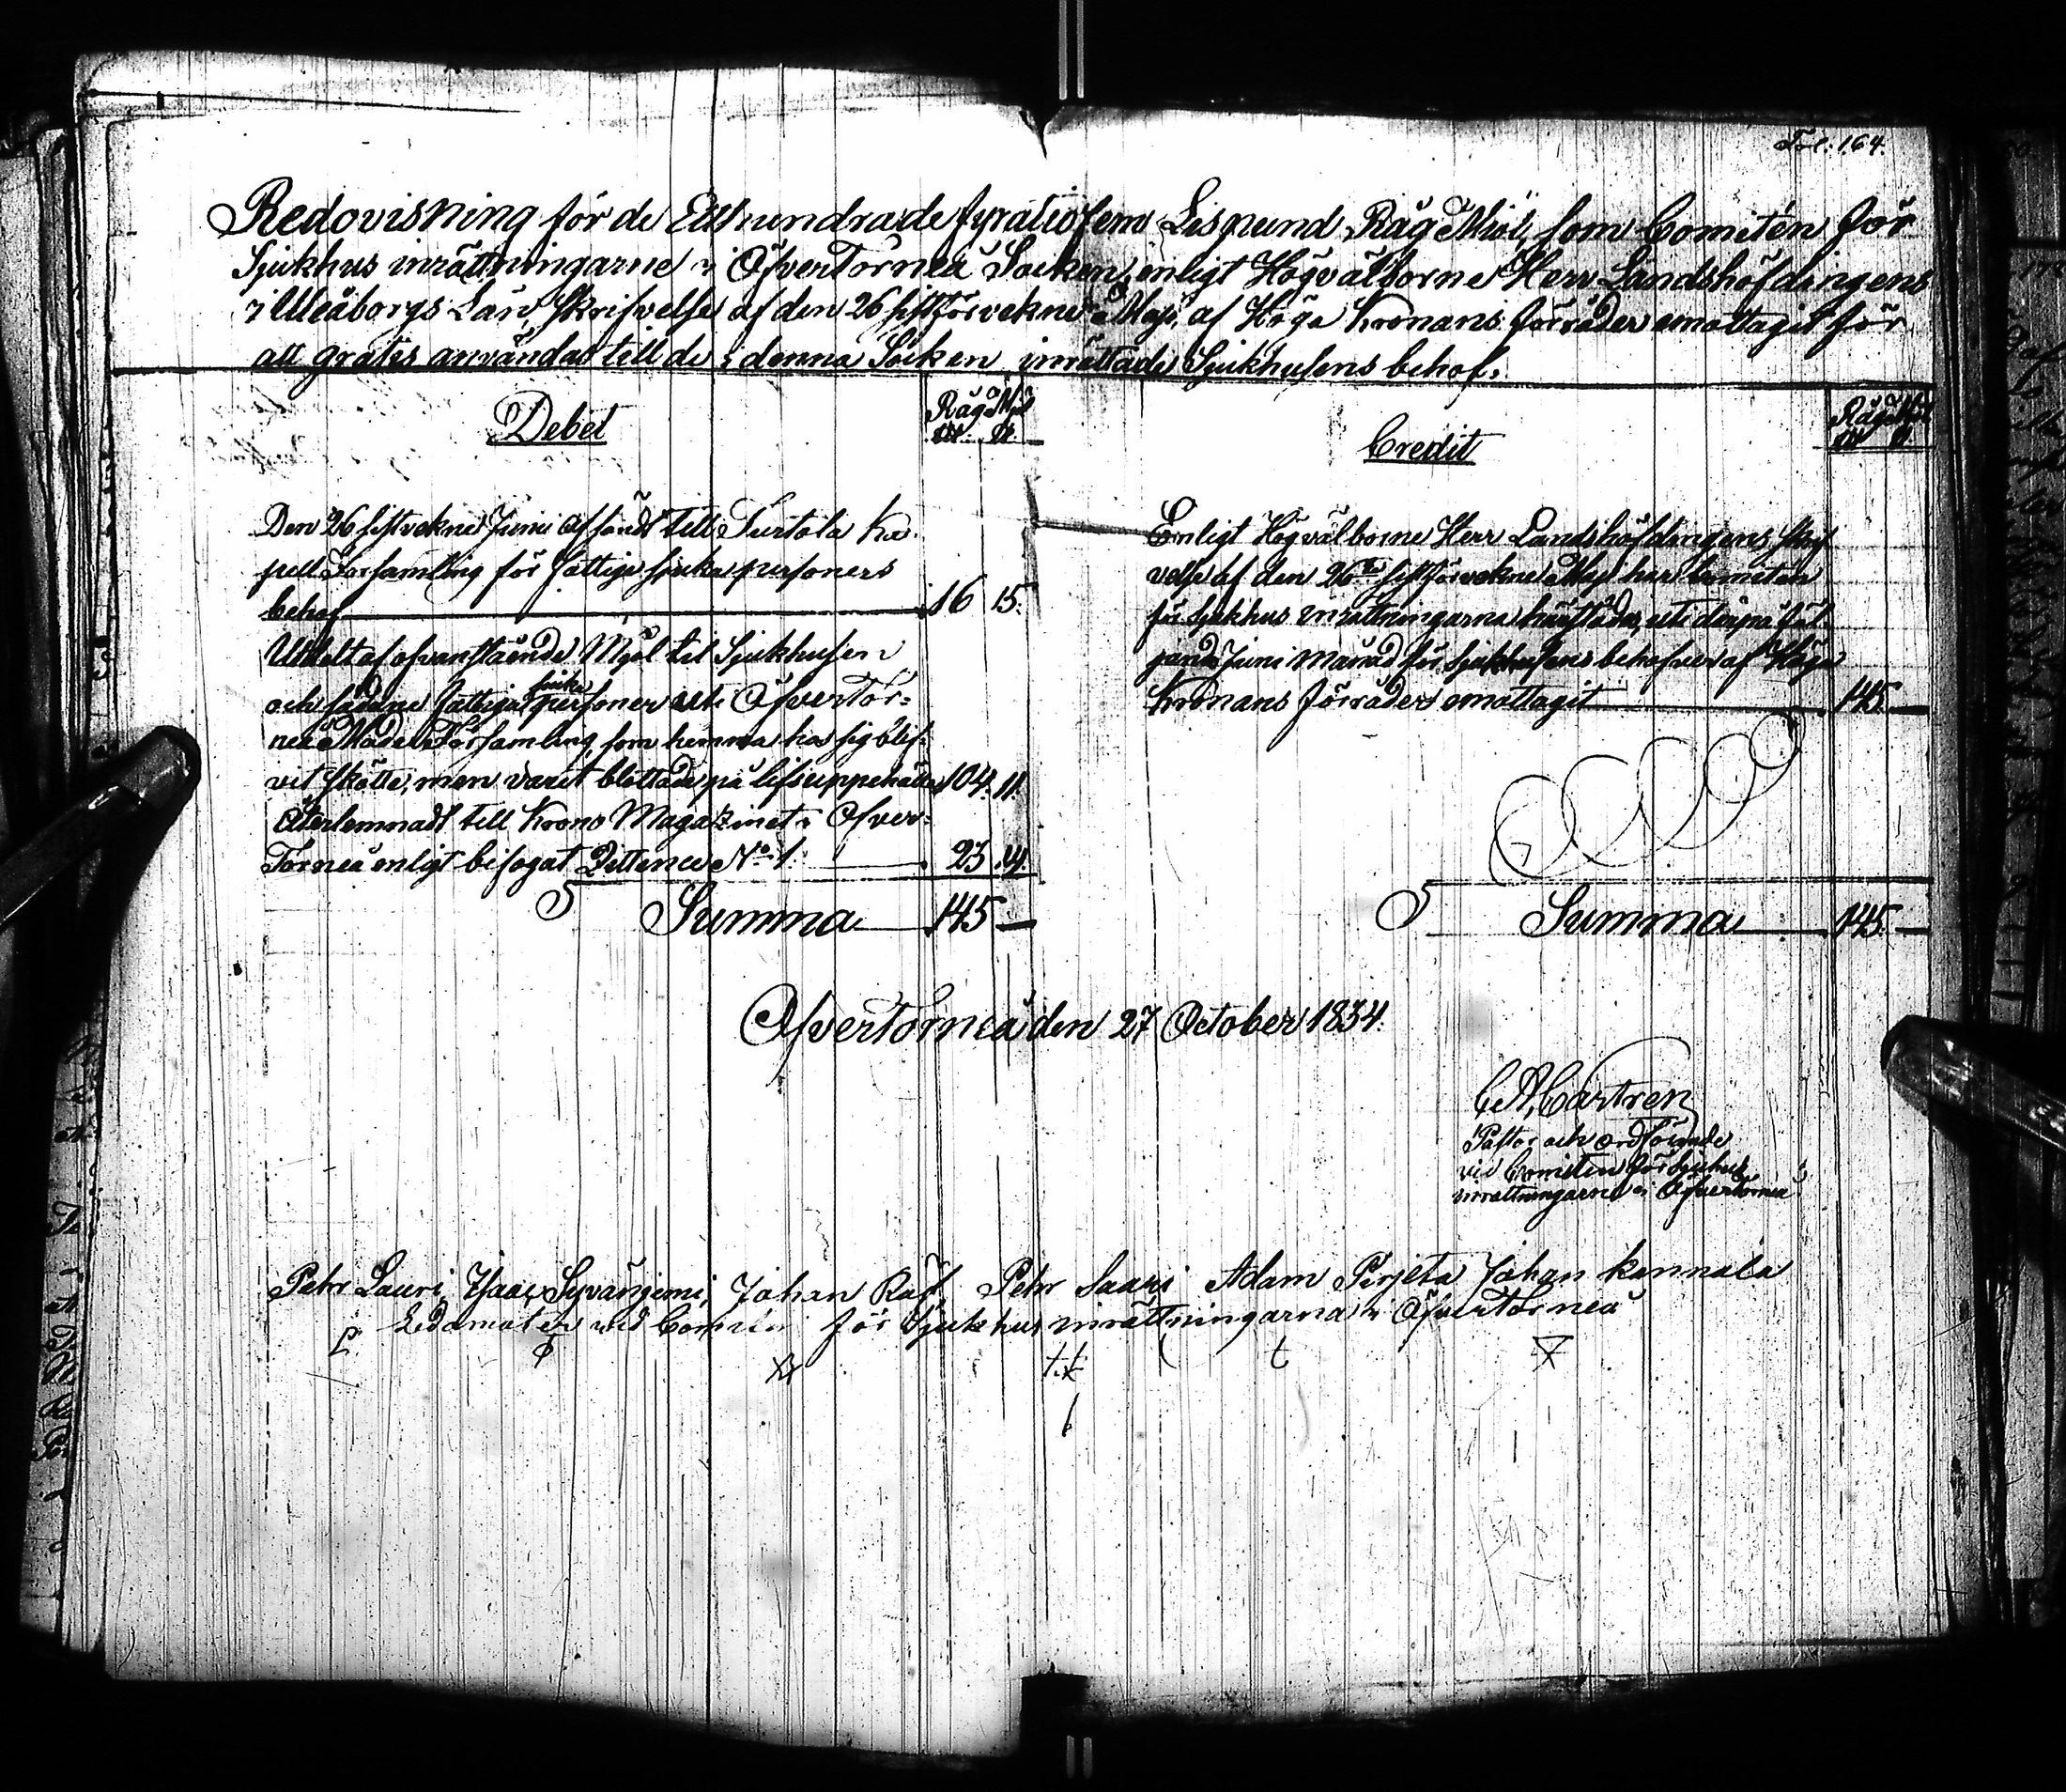 Fol: 164.
Redovisning för de Etthundrade fyratiofem Lispund Råg Mjöl, som Comitén för
Sjukhus inrättningarne i ÖfverTorneå Socken, enligt Högvälborne Herr Landshöfdingens
i Uleåborgs Län, Skrifvelse af den 26 sistförvekne Maji, af Höga Kronans förråder emottagit för
att gratis användas till de i denna Socken inrättade Sjukhusens behof.
Debet
Råg Mjöl
Credit
Råg Mjöl
Den 26 sistvekne Junii afsändt till Turtola Ka-
pell Församling för fattige sjuka personers
behof 16 15.
Utdelt af ofvanstående Mjöl til Sjukhusen
och sådane fattiga sjuka personer uti Öfvertor=
neå Moder Församling, som hemma hos sig blif-
vit skötte, men varit blottade på lifsuppehälle 104. 11.
Återlemnadt till Krono Magazinet i Öfver=
Torneå enligt bifogat Qvittence No 1. 23. 14.
Summa 145 —
Enligt Högvälborne Herr Landshöfdingens Skrif
velse af den 26te sistförvekne Maji har Comiten
för Sjukhus inrättningarna härstädes, uti därpå föl-
jande Junii månad för Sjukhusens behofver af Höga
Kronans förråder emottagit 145. —
Summa 145. —
ÖfverTorneå den 27 October 1834.
C. A. Castren
Pastor och ordförande
vid Comiten för Sjukhus
inrättningarne i Öfvertorneå
Petr Lauri, Isaac Syvänjemi, Johan Räf, Petr Saari Adam Pirjeta Johan Kannala
Ledamöter vid Comiten för Sjukhus inrättningarna i Öfvertorneå